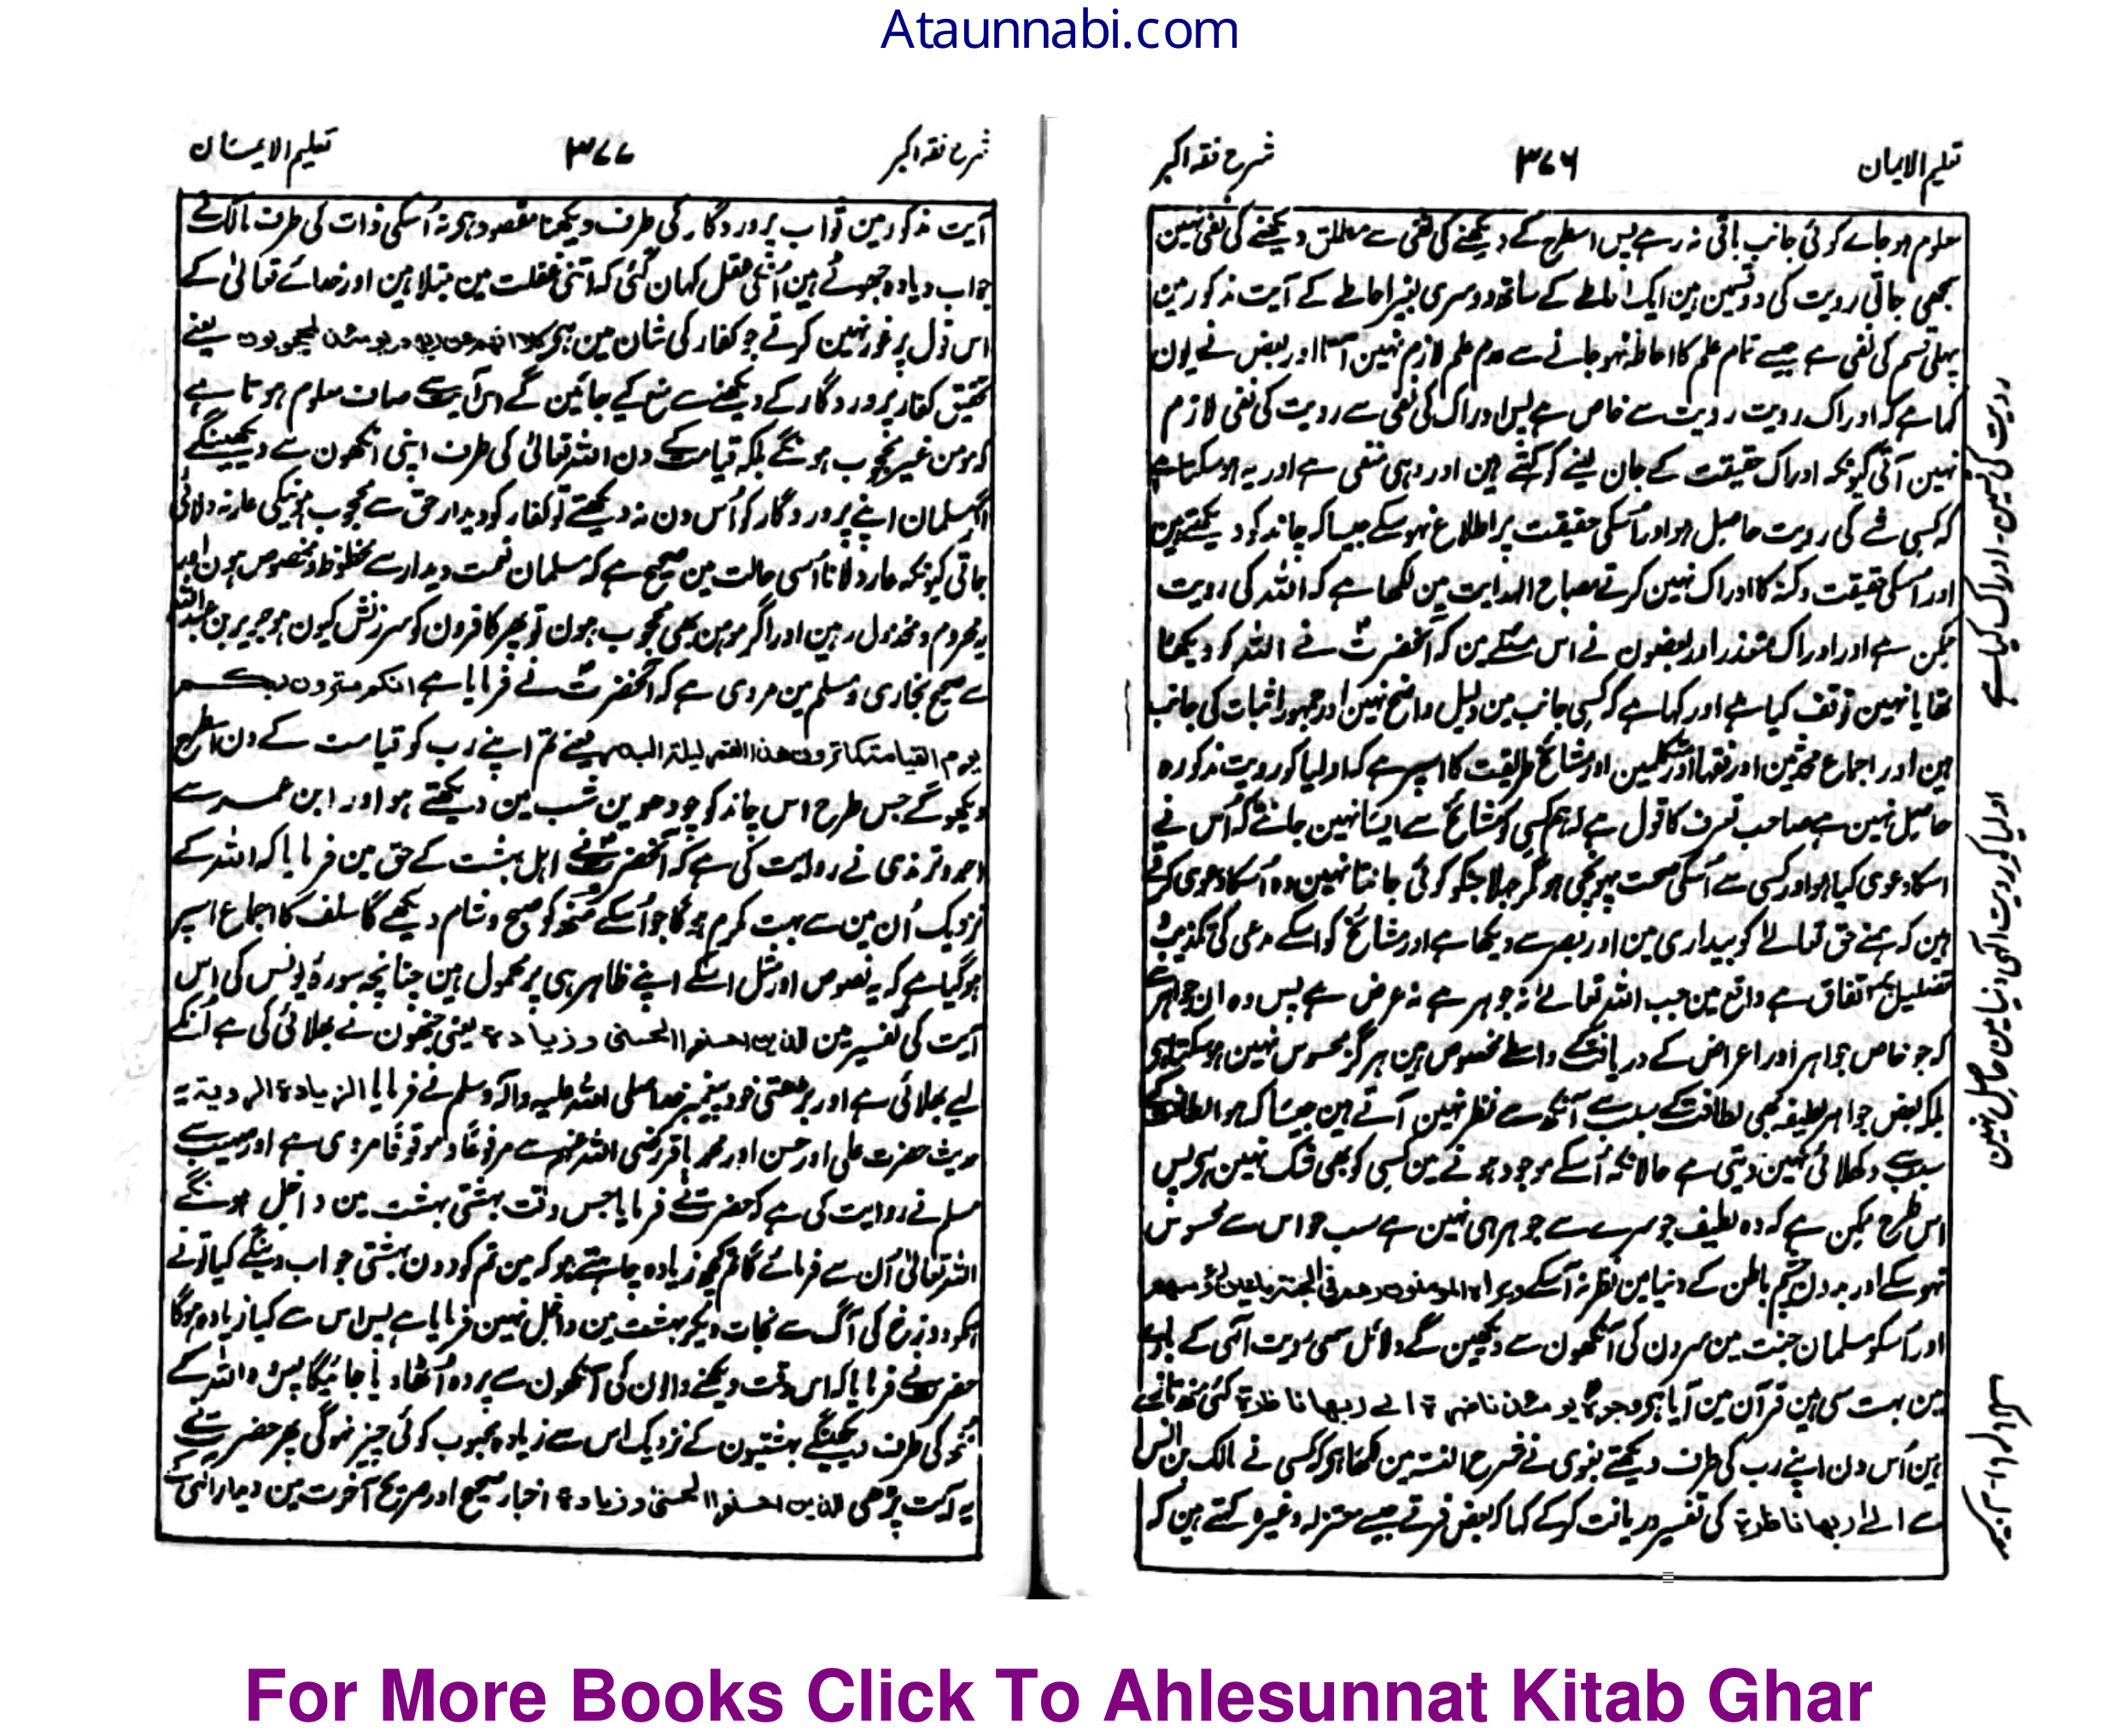 Ataunnabi.com
تعلیم الایمان ۳۷۶ شرح فقہ اکبر
معلوم ہو جاے کوئی جانب باقی نہ رہے پس اسطرح کے دیکھنے کی نفی سے مطلق دیکھنے کی نفی نہین
سمجھی جاتی رویت کی دو قسمین ہین ایک احاطے کے ساتھ دوسری بغیر احاطے کے آیت مذکور مین
پہلی قسم کی نفی ہے جیسے تمام علم کا احاطہ نہو جانے سے عدم علم لازم نہین آتا اور بعض نے یون
کہا ہے کہ ادراک رویت رویت سے خاص ہے پس ادراک کی نفی سے رویت کی نفی لازم
نہین آتی کیونکہ ادراک حقیقت کے جان لینے کو کہتے ہین اور وہی منفی ہے اور یہ ہو سکتا ہے
کہ کسی شے کی رویت حاصل ہو اور اُسکی حقیقت پر اطلاع نہو سکے جیسا کہ چاند کو دیکھتے ہین
اور اُسکی حقیقت و کنہ کا ادراک نہین کرتے مصباح الہدایت مین لکھا ہے کہ اللہ کی رویت
ممکن ہے اور ادراک متعذر اور بعضون نے اس مسئلے مین کہ آنحضرتؐ نے اللہ کو دیکھا
تھا یا نہین توقف کیا ہے اور کہا ہے کہ کسی جانب مین دلیل واضح نہین اور جمہور اثبات کی جانب
ہین اور اجماع محدثین اور فقہا اور متکلمین اور مشائخ طریقت کا اسپر ہے کہ اولیا کو رویت مذکورہ
حاصل نہین ہے صاحب تعرف کا قول ہے کہ ہم کسی کو مشائخ سے ایسا نہین جانتے کہ اُس نے
اسکا دعوی کیا ہو اور کسی سے اُسکی صحت پہونچی ہو مگر جہلا جنکو کوئی جانتا نہین وہ اُسکا دعوی کرتے
ہین کہ ہمنے حق تعالے کو بیداری مین اور بصر سے دیکھا ہے اور مشائخ کو اسکے مدعی کی تکذیب و
تضلیل پر اتفاق ہے واقع مین جب اللہ تعالے نہ جوہر ہے نہ عرض ہے پس وہ ان حواس سے
کہ جو خاص جواہر اور اعراض کے دریافت کے واسطے مخصوص ہین ہرگز محسوس نہین ہو سکتا ہے
بلکہ بعض جواہر لطیفہ بھی لطافت کے سبب سے آنکھ سے نظر نہین آتے ہین جیسا کہ ہوا لطافت کے
سبب سے دکھلائی نہین دیتی ہے حالانکہ اُسکے موجود ہونے مین کسی کو بھی شک نہین ہے پس
اس طرح ممکن ہے کہ وہ لطیف جو سرے سے جوہر ہی نہین ہے سب حواس سے محسوس
نہو سکے اور بدون چشم باطن کے دنیا مین نظر نہ آسکے ویراہ المومنون وھم فی الجنۃ باعین رؤسھم
اور اُسکو مسلمان جنت مین سرون کی آنکھون سے دیکھین گے دلائل سمعی رویت الٰہی کے بارے
مین بہت سی ہین قرآن مین آیا ہے وجوہ یومئذ ناضرۃ الے ربھا ناظرۃ کئی منھ تازے
ہین اُس دن اپنے رب کی طرف دیکھتے بغوی نے شرح السنہ مین لکھا ہے کہ کسی نے مالک بن انس
سے الے ربھا ناظرۃ کی تفسیر دریافت کرکے کہا کہ بعض فرقے جیسے معتزلہ وغیرہ کہتے ہین کہ
رویت کی قسمین۔ ادراک کیا ہے
اولیا کو رویت الٰہی دنیا مین حاصل نہین
شرح فقہ اکبر ۳۷۷ تعلیم الایمان
آیت مذکور مین ثواب پروردگار کی طرف دیکھنا مقصود ہے نہ اُسکی ذات کی طرف مالک نے
جواب دیا وہ جھوٹے ہین اُنکی عقل کہان گئی کہ اتنی غفلت مین مبتلا ہین اور خدائے تعالیٰ کے
اس قول پر غور نہین کرتے جو کفار کی شان مین ہے کلا انھم عن ربھم یومئذ لمحجوبون یعنے
تحقیق کفار پروردگار کے دیکھنے سے منع کیے جائین گے اس آیت سے صاف معلوم ہوتا ہے
کہ مومن غیر محجوب ہونگے بلکہ قیامت کے دن اللہ تعالیٰ کی طرف اپنی آنکھون سے دیکھینگے
اگر مسلمان اپنے پروردگار کو اُس دن نہ دیکھتے تو کفار کو دیدار حق سے محجوب ہونیکی عار نہ دلائی
جاتی کیونکہ عار دلانا اُسی حالت مین صحیح ہے کہ مسلمان نعمت دیدار سے محظوظ و مخصوص ہون اور
یہ محروم و مخذول رہین اور اگر مومن بھی محجوب ہون تو پھر کافرون کو سرزنش کیون ہو جریر بن عبداللہ
سے صحیح بخاری و مسلم مین مروی ہے کہ آنحضرتؐ نے فرمایا ہے انکم سترون ربکم
یوم القیامۃ کما ترون ھذا القمر لیلۃ البدر یعنے تم اپنے رب کو قیامت کے دن اسطرح
دیکھو گے جس طرح اس چاند کو چودھوین شب مین دیکھتے ہو اور ابن عمر سے
احمد و ترمذی نے روایت کی ہے کہ آنحضرتؐ نے اہل بہشت کے حق مین فرمایا کہ اللہ کے
نزدیک اُن مین سے بہت مکرم ہوگا جو اُسکے منھ کو صبح و شام دیکھے گا سلف کا اجماع اسپر
ہوگیا ہے کہ یہ نصوص اور مثل اسکے اپنے ظاہر ہی پر محمول ہین چنانچہ سورۂ یونس کی اس
آیت کی تفسیر مین للذین احسنوا الحسنی و زیادۃ یعنی جنھون نے بھلائی کی ہے اُنکے
لیے بھلائی ہے اور بڑھتی خود پیغمبر خدا صلی اللہ علیہ وآلہ وسلم نے فرمایا الزیادۃ الرویۃ یہ
حدیث حضرت علی اور حسن اور محمد باقر رضی اللہ عنہم سے مرفوعًا و موقوفًا مروی ہے اور صہیب سے
مسلم نے روایت کی ہے کہ حضرتؐ نے فرمایا جس وقت بہشتی بہشت مین داخل ہونگے
اللہ تعالیٰ اُن سے فرمائے گا تم کچھ زیادہ چاہتے ہو کہ مین تم کو دون بہشتی جواب دینگے کیا تونے
ہمکو دوزخ کی آگ سے نجات دیکر بہشت مین داخل نہین فرمایا ہے پس اس سے کیا زیادہ ہوگا
حضرتؐ نے فرمایا کہ اس وقت دیکھنے والون کی آنکھون سے پردہ اُٹھا دیا جائیگا پس وہ اللہ کے
منھ کی طرف دیکھینگے بہشتیون کے نزدیک اس سے زیادہ محبوب کوئی چیز نہوگی پھر حضرتؐ نے
یہ آیت پڑھی للذین احسنوا الحسنی و زیادۃ اخبار صحیح اور صریح آخرت مین دیدار الٰہی کے
For More Books Click To Ahlesunnat Kitab Ghar